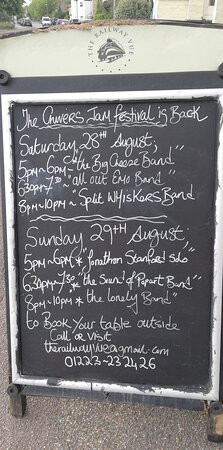 THE RAILWAY VUE
The Chivers Jam Festival is Back
Saturday 28TH August,
5pm-6pm "the Big Cheeze Band"
630pm-730 "all out Emo Band"
8pm-10pm - Split Whiskers Band
Sunday 29TH August,
5pm-6pm * Jonathon Stanford solo
630pm-730 * the Sound of Pupart Band"
8pm-10pm * the lonely "Band"
to Book Your table outside
Call or Visit
therailwayvue@gmail.com
01223-232426